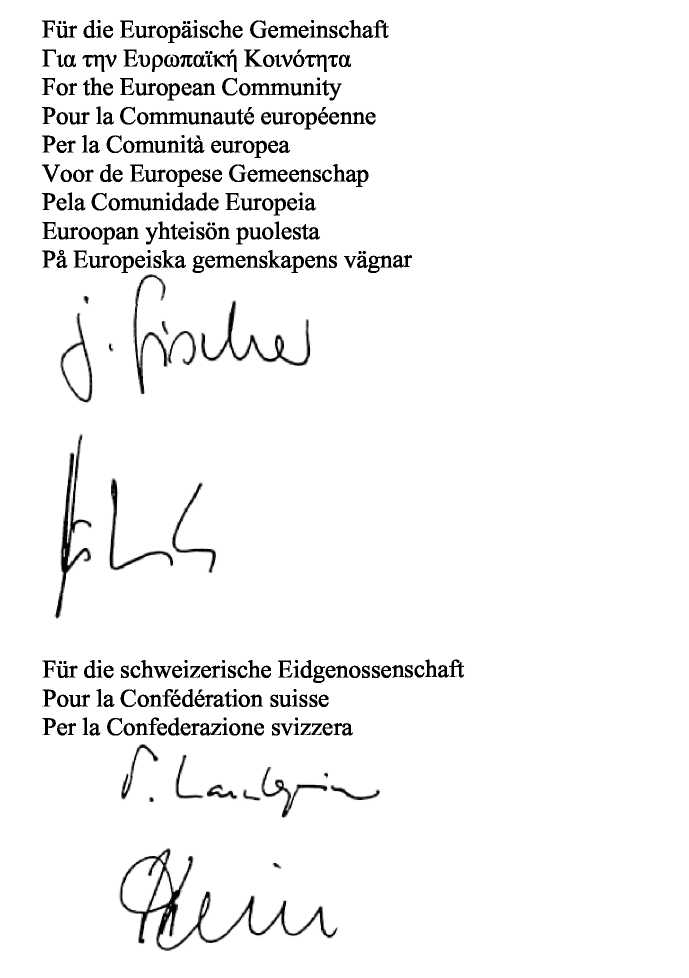 Für die Europäische Gemeinschaft
Για την Ευρωπαϊκή Κοινότητα
For the European Community
Pour la Communauté européenne
Per la Comunità europea
Voor de Europese Gemeenschap
Pela Comunidade Europeia
Euroopan yhteisön puolesta
På Europeiska gemenskapens vägnar
J. Fischer
Für die schweizerische Eidgenossenschaft
Pour la Confédération suisse
Per la Confederazione svizzera